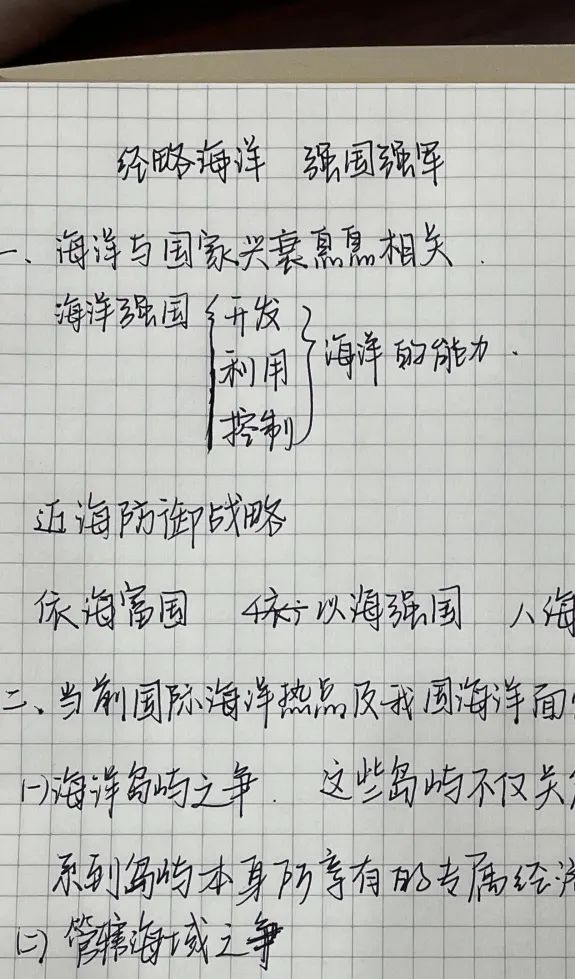 经略海洋 强国强军
一、海洋与国家兴衰息息相关.
海洋强国 { 开发 利用 控制 } 海洋的能力.
近海防御战略
依海富国 以海强国 人海
二、当前国际海洋热点及我国海洋面
(一)海洋岛屿之争. 这些岛屿不仅关
系到岛屿本身所享有的专属经济
(二) 管辖海域之争